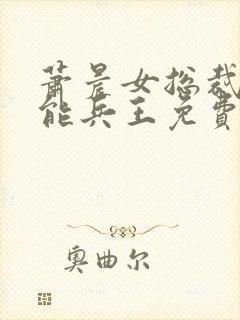 萧晨女总裁
能兵王免费
奥曲尔